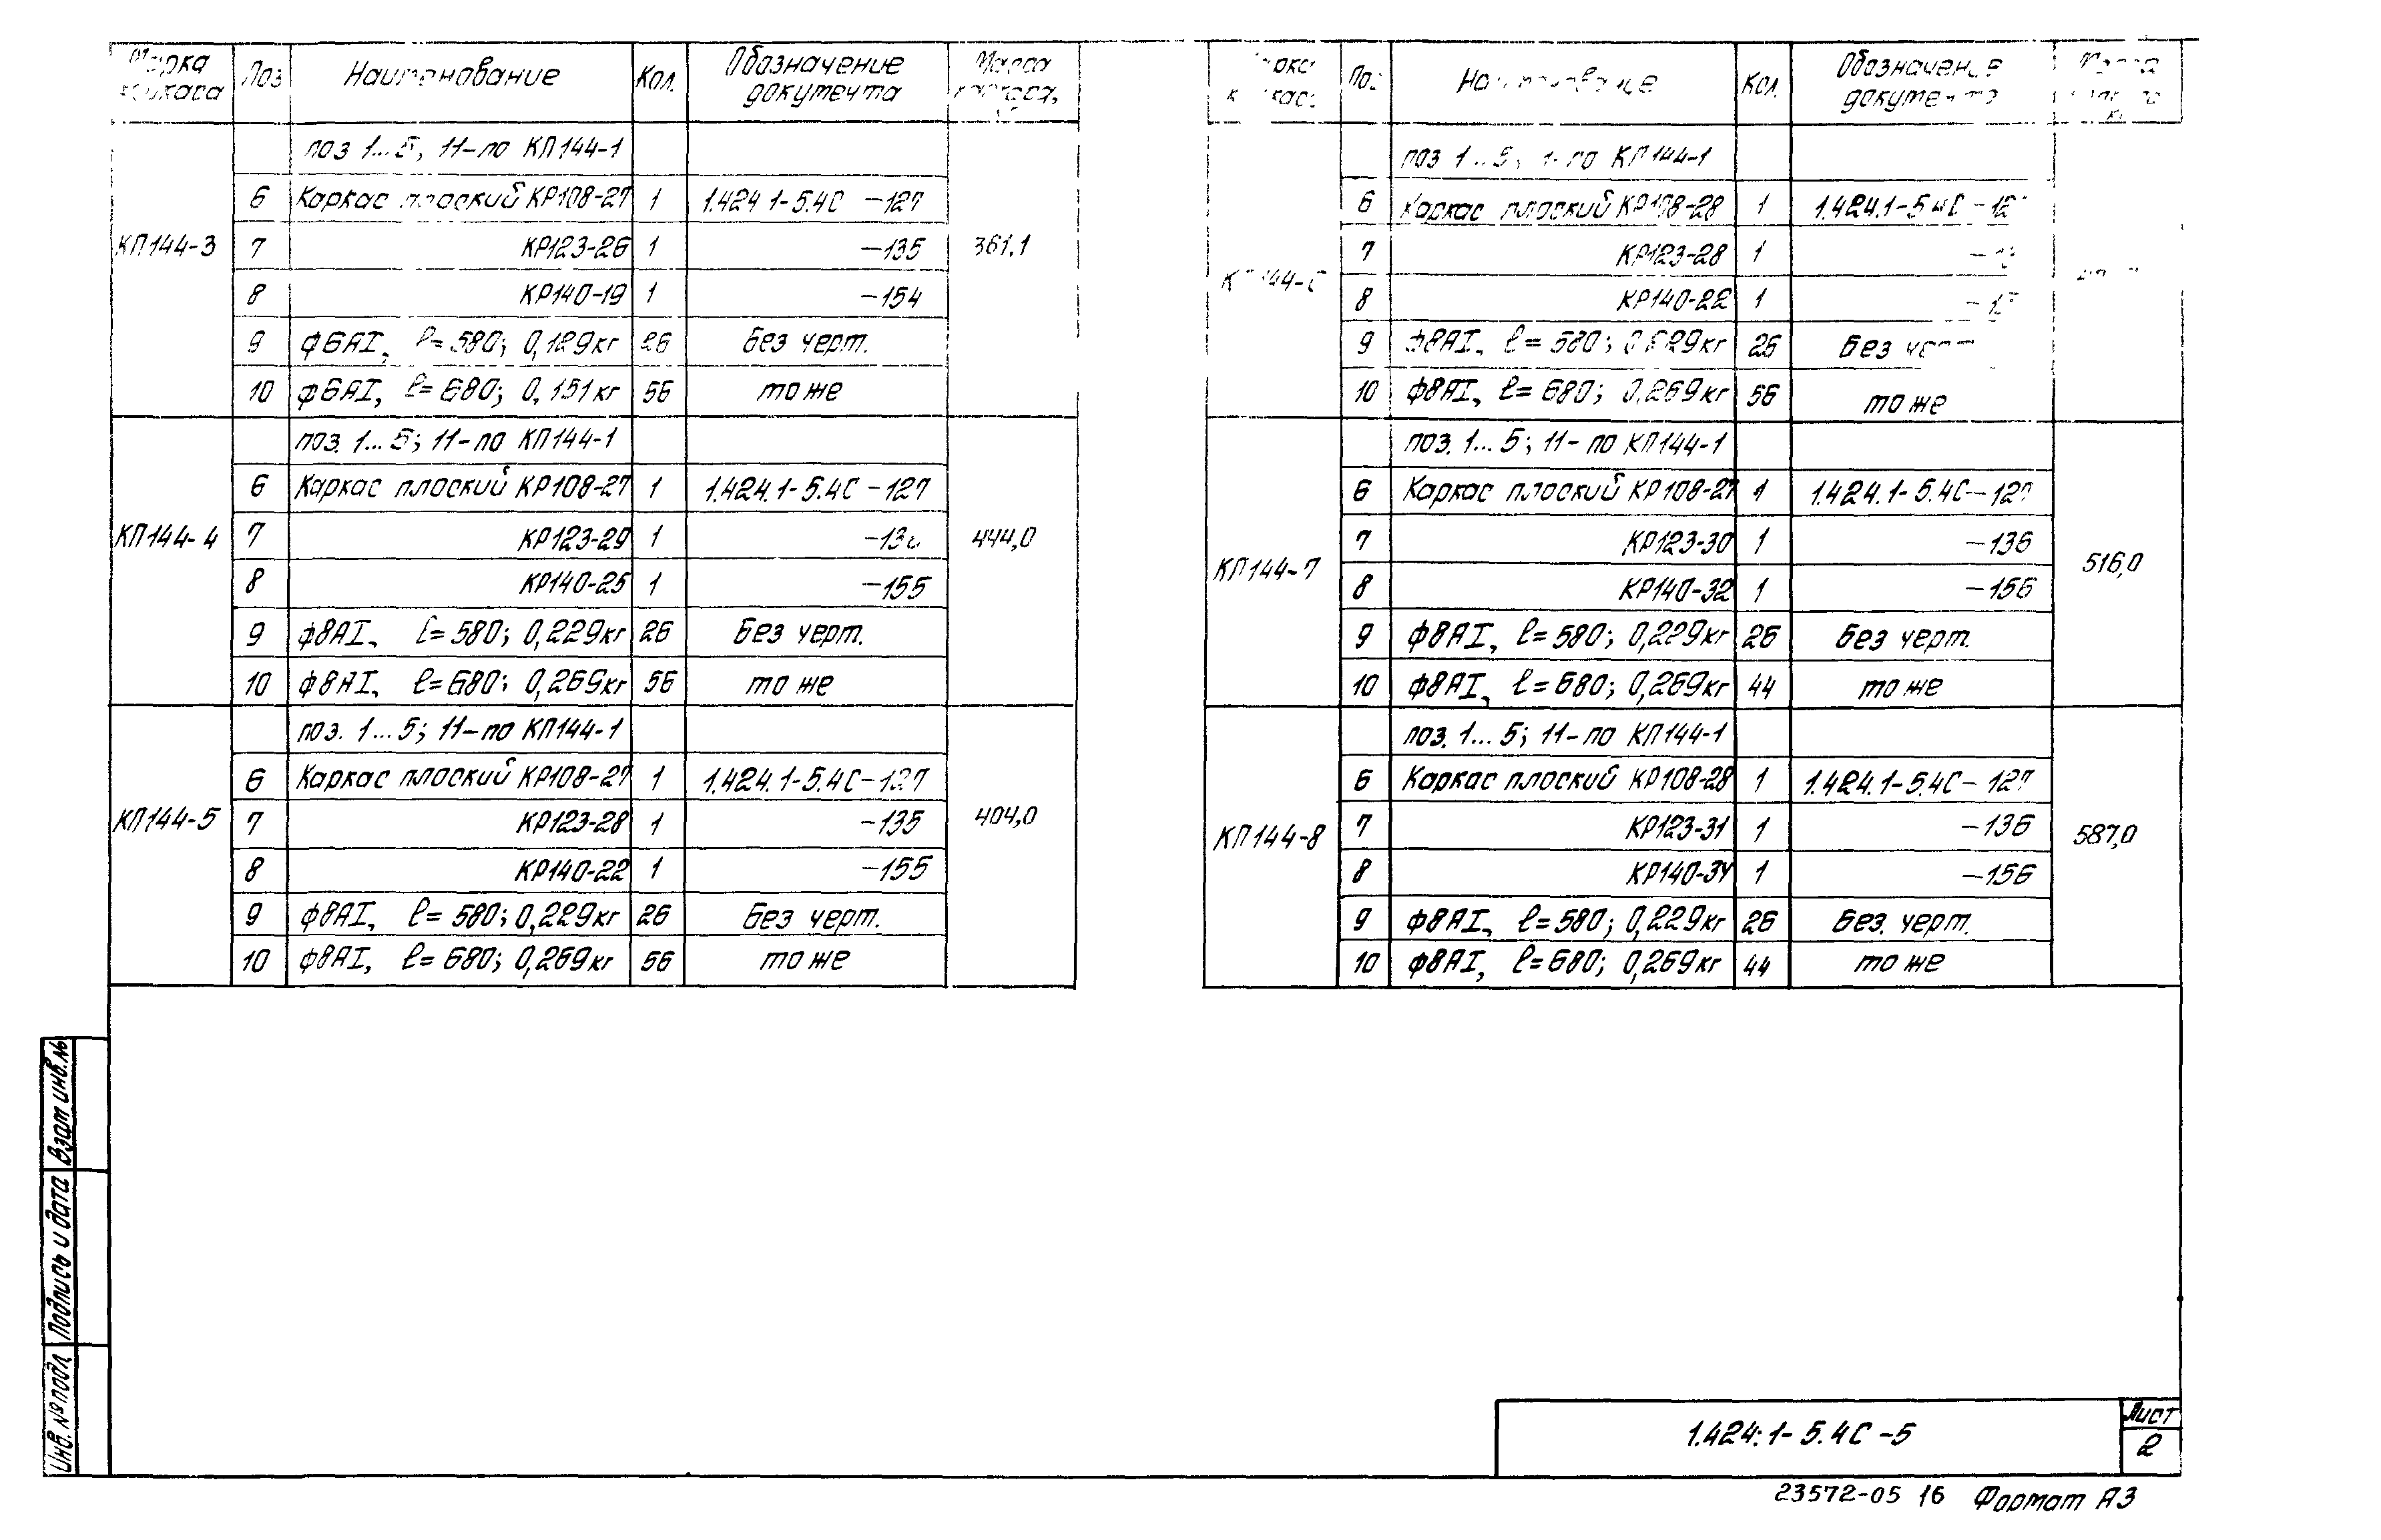 Марка каркаса | Поз | Наименование | Кол. | Обозначение документа | Масса каркаса,
поз 1...5; 11-по КП144-1
6 | Каркас плоский КР108-27 | 1 | 1.424 1-5.4С -127
КП144-3 | 7 | КР123-26 | 1 | -135 | 361,1
8 | КР140-19 | 1 | -154
9 | ф6АI, ℓ=580; 0,129кг | 26 | Без черт.
10 | ф6АI, ℓ=680; 0,151кг | 56 | то же
поз. 1...5; 11-по КП144-1
6 | Каркас плоский КР108-27 | 1 | 1.424.1-5.4С -127
КП144-4 | 7 | КР123-29 | 1 | 444,0
8 | КР140-25 | 1 | -155
9 | ф8АI, ℓ=580; 0,229кг | 26 | Без черт.
10 | ф8АI, ℓ=680; 0,269кг | 56 | то же
поз. 1...5; 11-по КП144-1
6 | Каркас плоский КР108-27 | 1 | 1.424.1-5.4С-127
КП144-5 | 7 | КР123-28 | 1 | -135 | 404,0
8 | КР140-22 | 1 | -155
9 | ф8АI, ℓ=580; 0,229кг | 26 | Без черт.
10 | ф8АI, ℓ=680; 0,269кг | 56 | то же
Наименование | Кол. | Обозначение документа
поз 1...5; по КП144-1
6 | Каркас плоский КР108-28 | 1 | 1.424.1-5.4С
7 | КР123-28 | 1
8 | КР140-22 | 1
9 | ф8АI, ℓ=580; | 26 | Без
10 | ф8АI, ℓ=680; 0,269кг | 56 | то же
поз. 1...5; 11-по КП144-1
6 | Каркас плоский КР108-27 | 1 | 1.424.1-5.4С-127
7 | КР123-30 | 1 | -136
КП144-7 | 8 | КР140-32 | 1 | -156 | 516,0
9 | ф8АI, ℓ=580; 0,229кг | 26 | Без черт.
10 | ф8АI, ℓ=680; 0,269кг | 44 | то же
поз. 1...5; 11-по КП144-1
6 | Каркас плоский КР108-28 | 1 | 1.424.1-5.4С-127
КП144-8 | 7 | КР123-31 | 1 | -136 | 587,0
8 | КР140-34 | 1 | -156
9 | ф8АI, ℓ=580; 0,229кг | 26 | Без. черт.
10 | ф8АI, ℓ=680; 0,269кг | 44 | то же
Взам инв.№
Подпись и дата
Инв. № подл
1.424.1-5.4С-5
Лист
2
23572-05 16 Формат А3